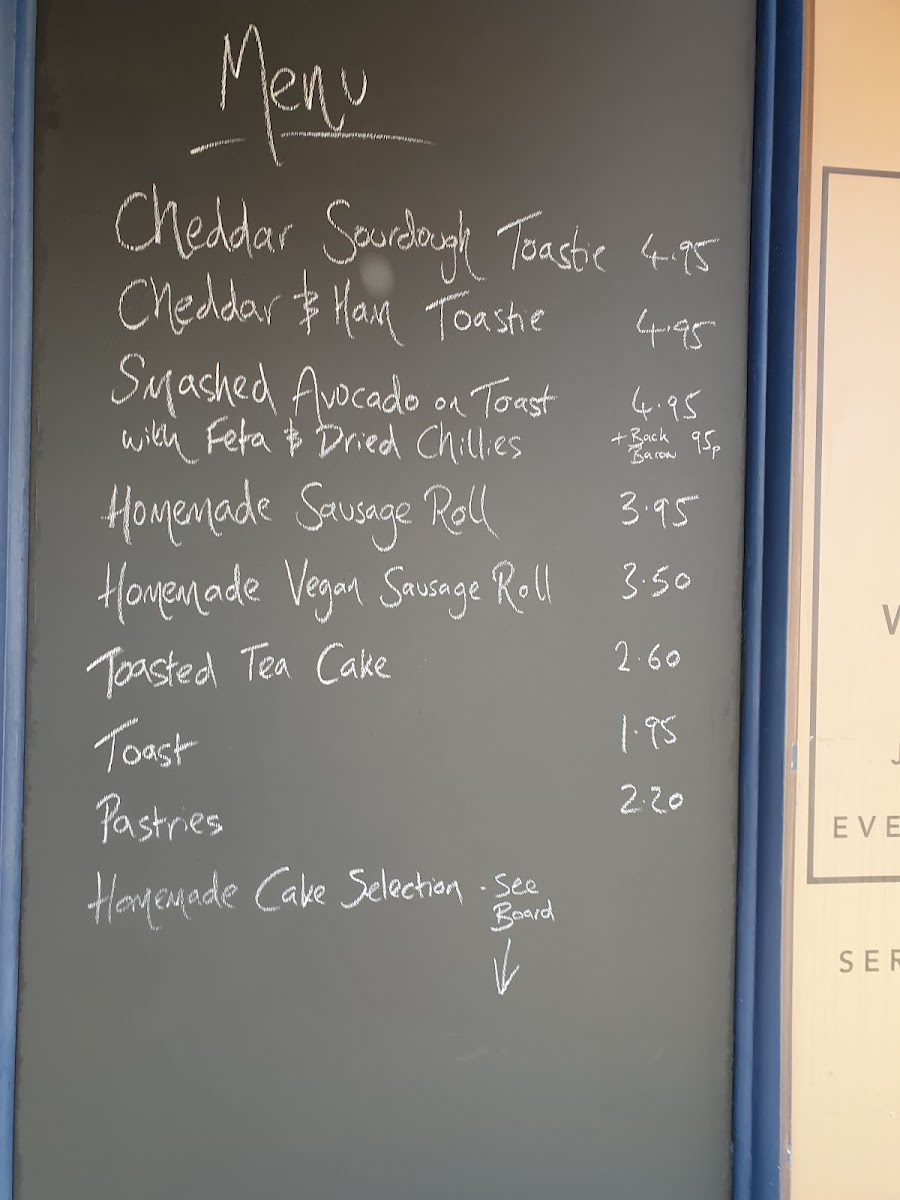 Menu
Cheddar Sourdough Toastie 4.95
Cheddar & Ham Toastie 4.95
Smashed Avocado on Toast 4.95
with Feta & Dried Chillies + Back Bacon 95p
Homemade Sausage Roll 3.95
Homemade Vegan Sausage Roll 3.50
Toasted Tea Cake 2.60
Toast 1.95
Pastries 2.20
Homemade Cake Selection - See
Board
EVE
SER